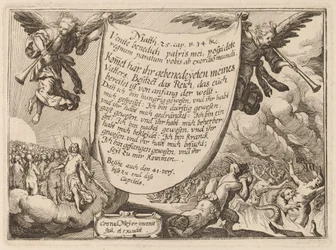 Matth. 25. cap. v. 34 &c.
Venite benedicti patris mei, possidete
regnum paratum vobis ab exordio mundi.
Kom̄et har ihr gebenedeyten meines
Vatters, Besitzet das Reich, das euch
bereitet ist von anfang der welt.
Dañ ich bin hungerig gewesen, und ihr habt
mich gespeißt: Ich bin durstig gewesen,
und ihr habt mich getränckt: Ich bin ein
gast gewesen, und ihr habt mich beherber-
get: Ich bin nackt gewesen, und ihr
habt mich bekleidt: Ich bin kranck
gewesen, und ihr habt mich besucht:
Ich bin gefangen gewesen, und ihr
seyt zu mir kommen.
Besihe auch den 41. vers.
diß
Capitels
Conrad Meyer invenit